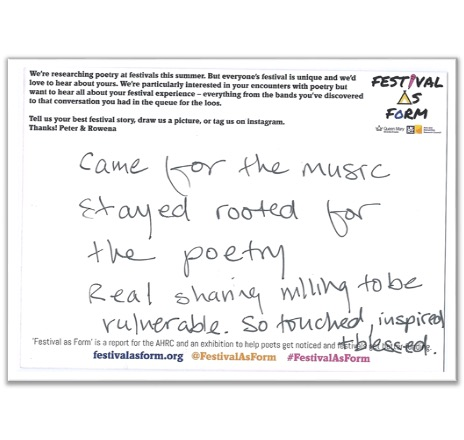 We're researching poetry at festivals this summer. But everyone's festival is unique and we'd
love to hear about yours. We're particularly interested in your encounters with poetry but
want to hear all about your festival experience – everything from the bands you've discovered
to that conversation you had in the queue for the loos.
Tell us your best festival story, draw us a picture, or tag us on instagram.
Thanks! Peter & Rowena
FESTIVAL
AS
FORM
Queen Mary
Came for the music
Stayed rooted for
the poetry
Real sharing willing to be
vulnerable. So touched, inspired
+ blessed.
'Festival as Form' is a report for the AHRC and an exhibition to help poets get noticed and
festivalasform.org @FestivalAsForm #FestivalAsForm